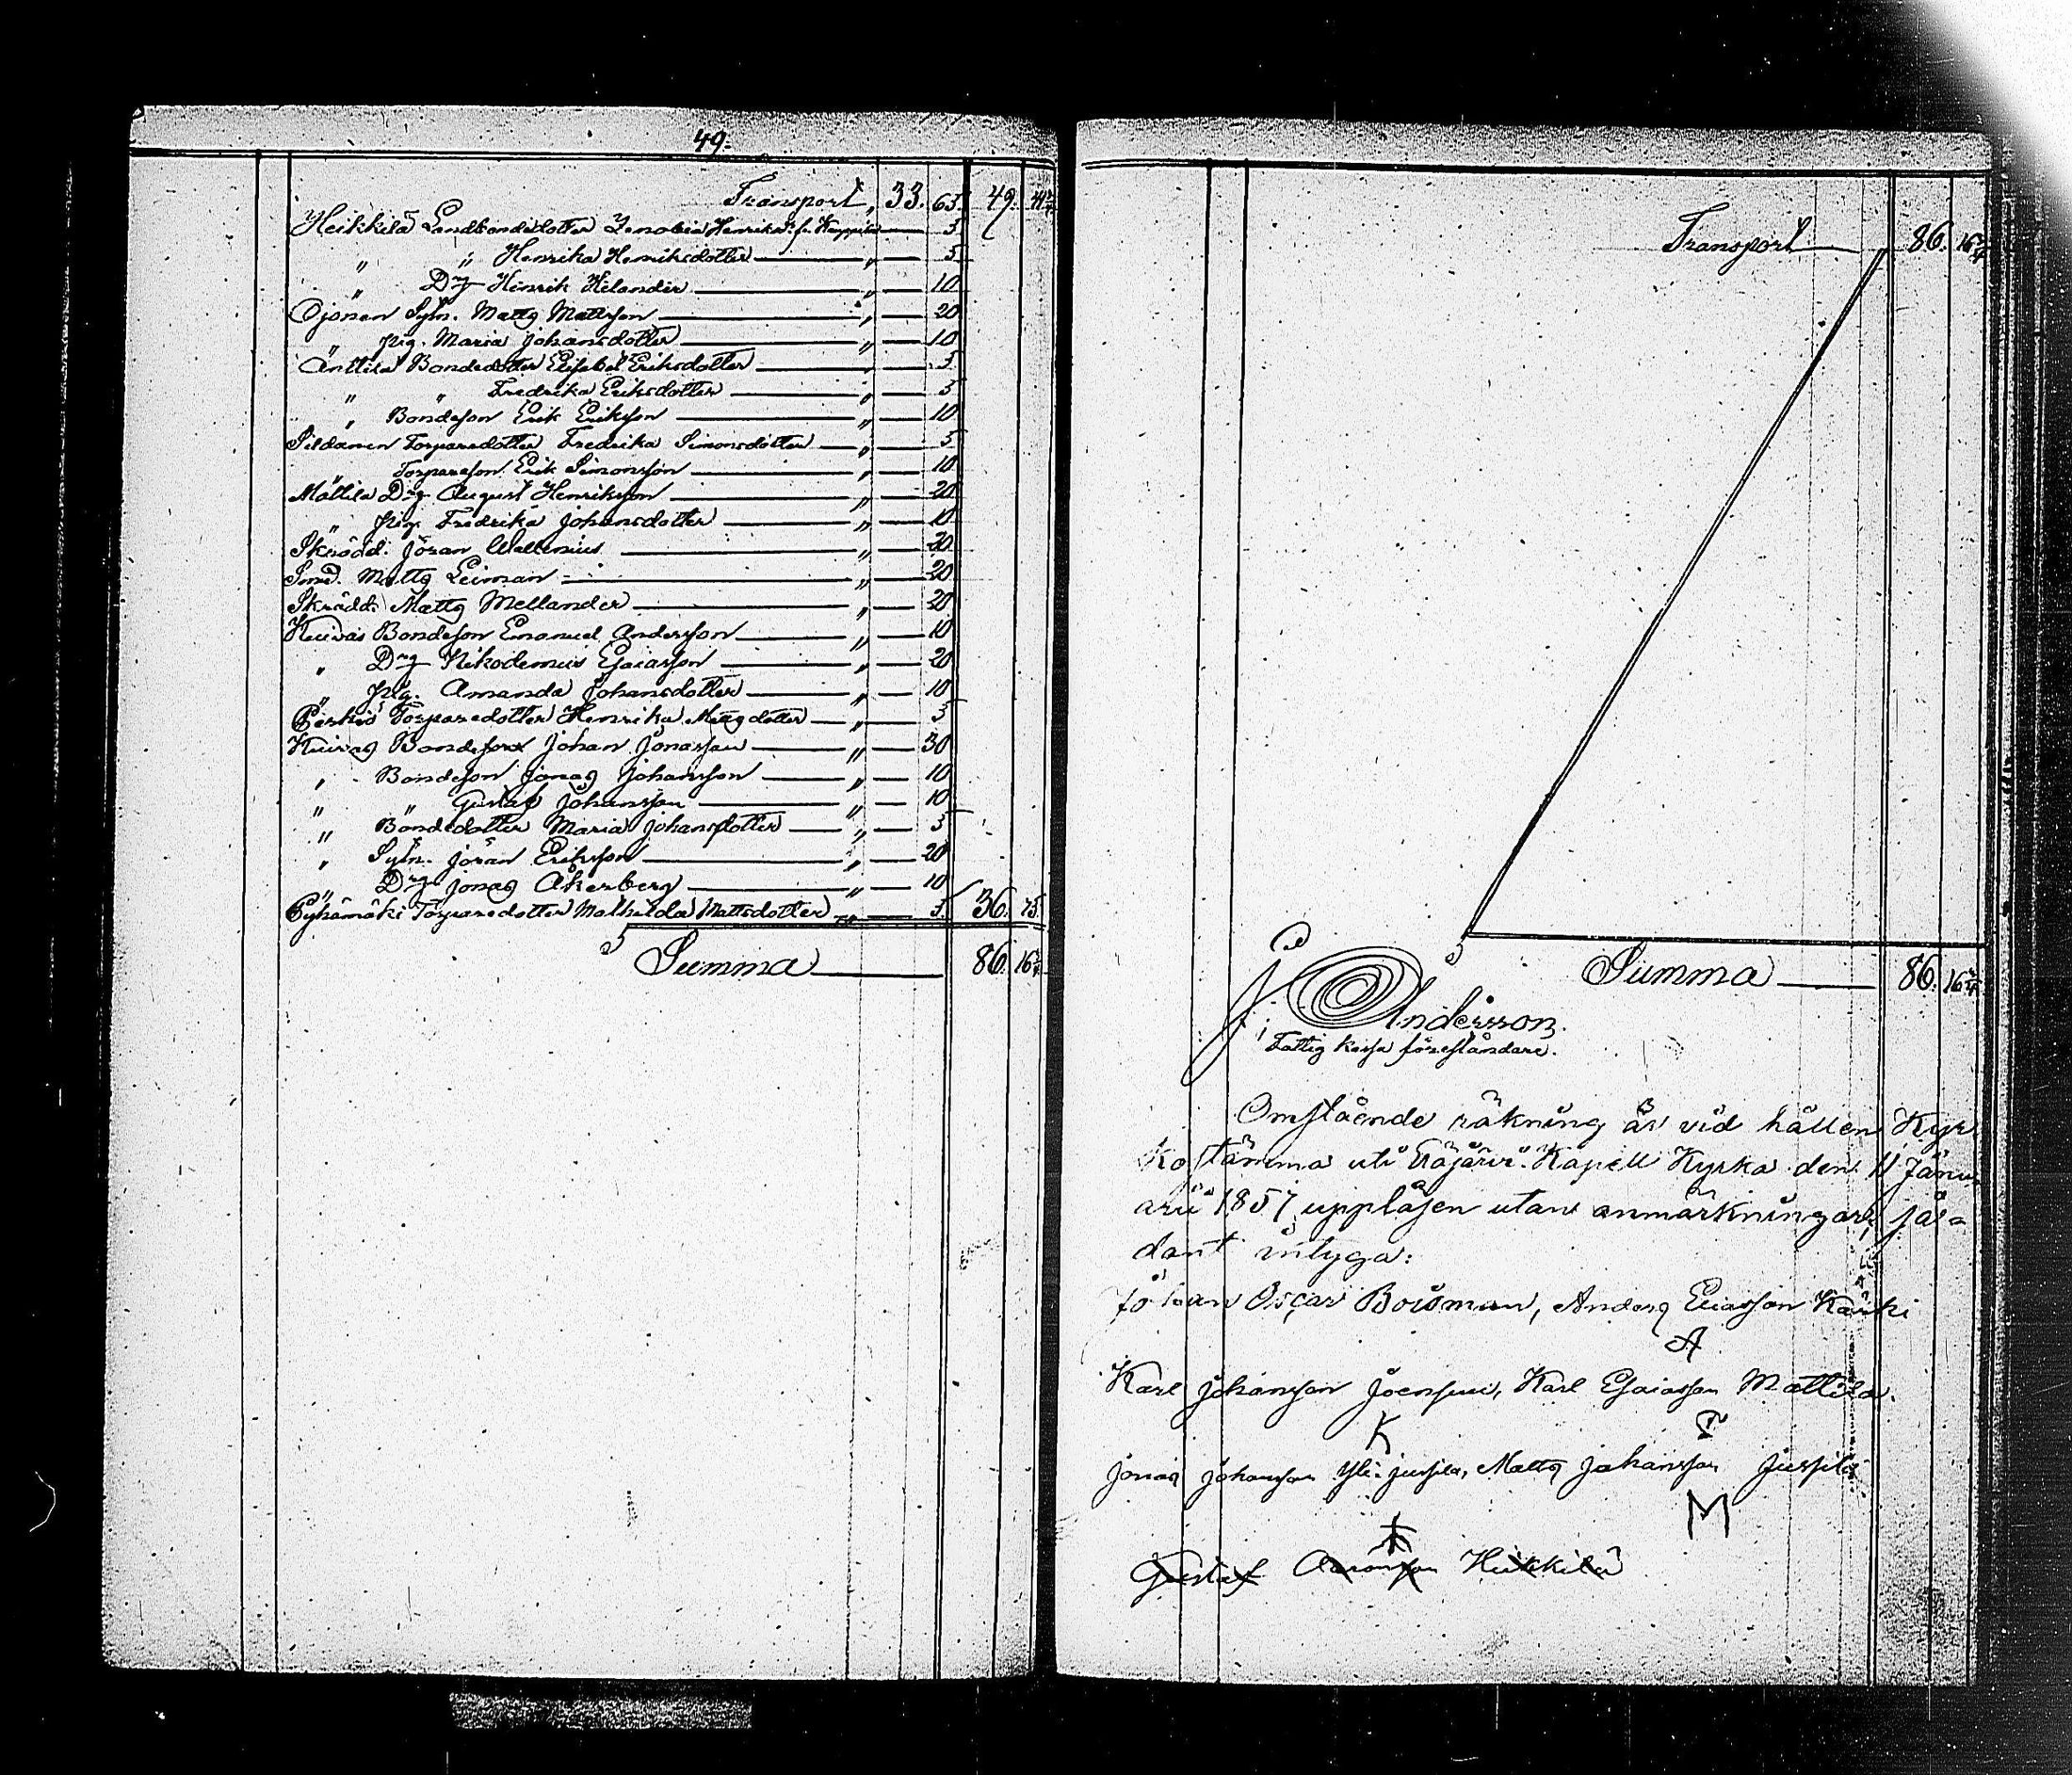 49.
Transport, 33. 63. 49. 41 2/7
Heikkilä Landbondedotter Zenobia Henriksdr fr. Kauppila — 5
" " Henrika Henriksdotter — " — 5
" Drg Henrik Helander — " — 10
Ojanen Sytn. Matts Mattsson — " — 20
" pig. Maria Johansdotter — " — 10
Anttila Bondedotter Elisabet Eriksdotter — " — 5
" " Fredrika Eriksdotter — " — 5
" Bondeson Erik Eriksson — " — 10
Sildanen Torparedotter Fredrika Simonsdotter — " — 5
" Torpareson Erik Simonsson — " — 10
Mattila Drg August Henriksson — " — 20
" pig. Fredrika Johansdotter — " — 10
Skrädd. Jöran Wallenius — " — 20
Smed. Matts Leiman — " — 20
Skrädd. Matts Mellander — " — 20
Kuivas Bondeson Emanuel Andersson — " — 10
" Drg Nikodemus Esaiasson — " — 20
" pig. Amanda Johansdotter — " — 10
Torparedotter Henrika Mattsdotter — " — 5
Kuivas Johan Jonasson — " — 30
" Bondeson Jonas Johansson — " — 10
" " Gustaf Johansson — " — 10
" Bondedotter Maria Johansdotter — " — 5
" Sytn. Jöran Eriksson — " — 20
" Drg Jonas Åkerberg — " — 10
Pyhämäki Torparedotter Mathilda Mattsdotter — " — 5 36. 75.
Summa — 86. 16 2/7
Transport — 86. 16 2/7
Summa — 86. 16 2/7
J. Andersson.
Fattig kassa föreståndare.
Omstående räkning är vid hållen Kyr
kostämma uti Evijärvi Kapell Kyrka den 11 Janu
arii 1857 uppläsen utan anmärkningar, så=
dant intyga:
Johan Oscar Boisman, Anders Eliasson Kärki
A
Karl Johansson Joensuu, Karl Esaiasson Mattila.
K
Jonas Johansson Yli-Jussila, Matts Johansson Jussila
M
Gustaf Aaronsson Heikkilä